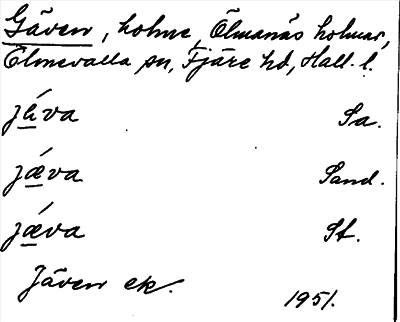 Gäven, holme, Ölmanäs holmar,
Ölmevalla sn, Fjäre hd, Hall. l.
jä́va Sa.
jǽva Sand.
jǽva St.
Jäven ek. 1951.